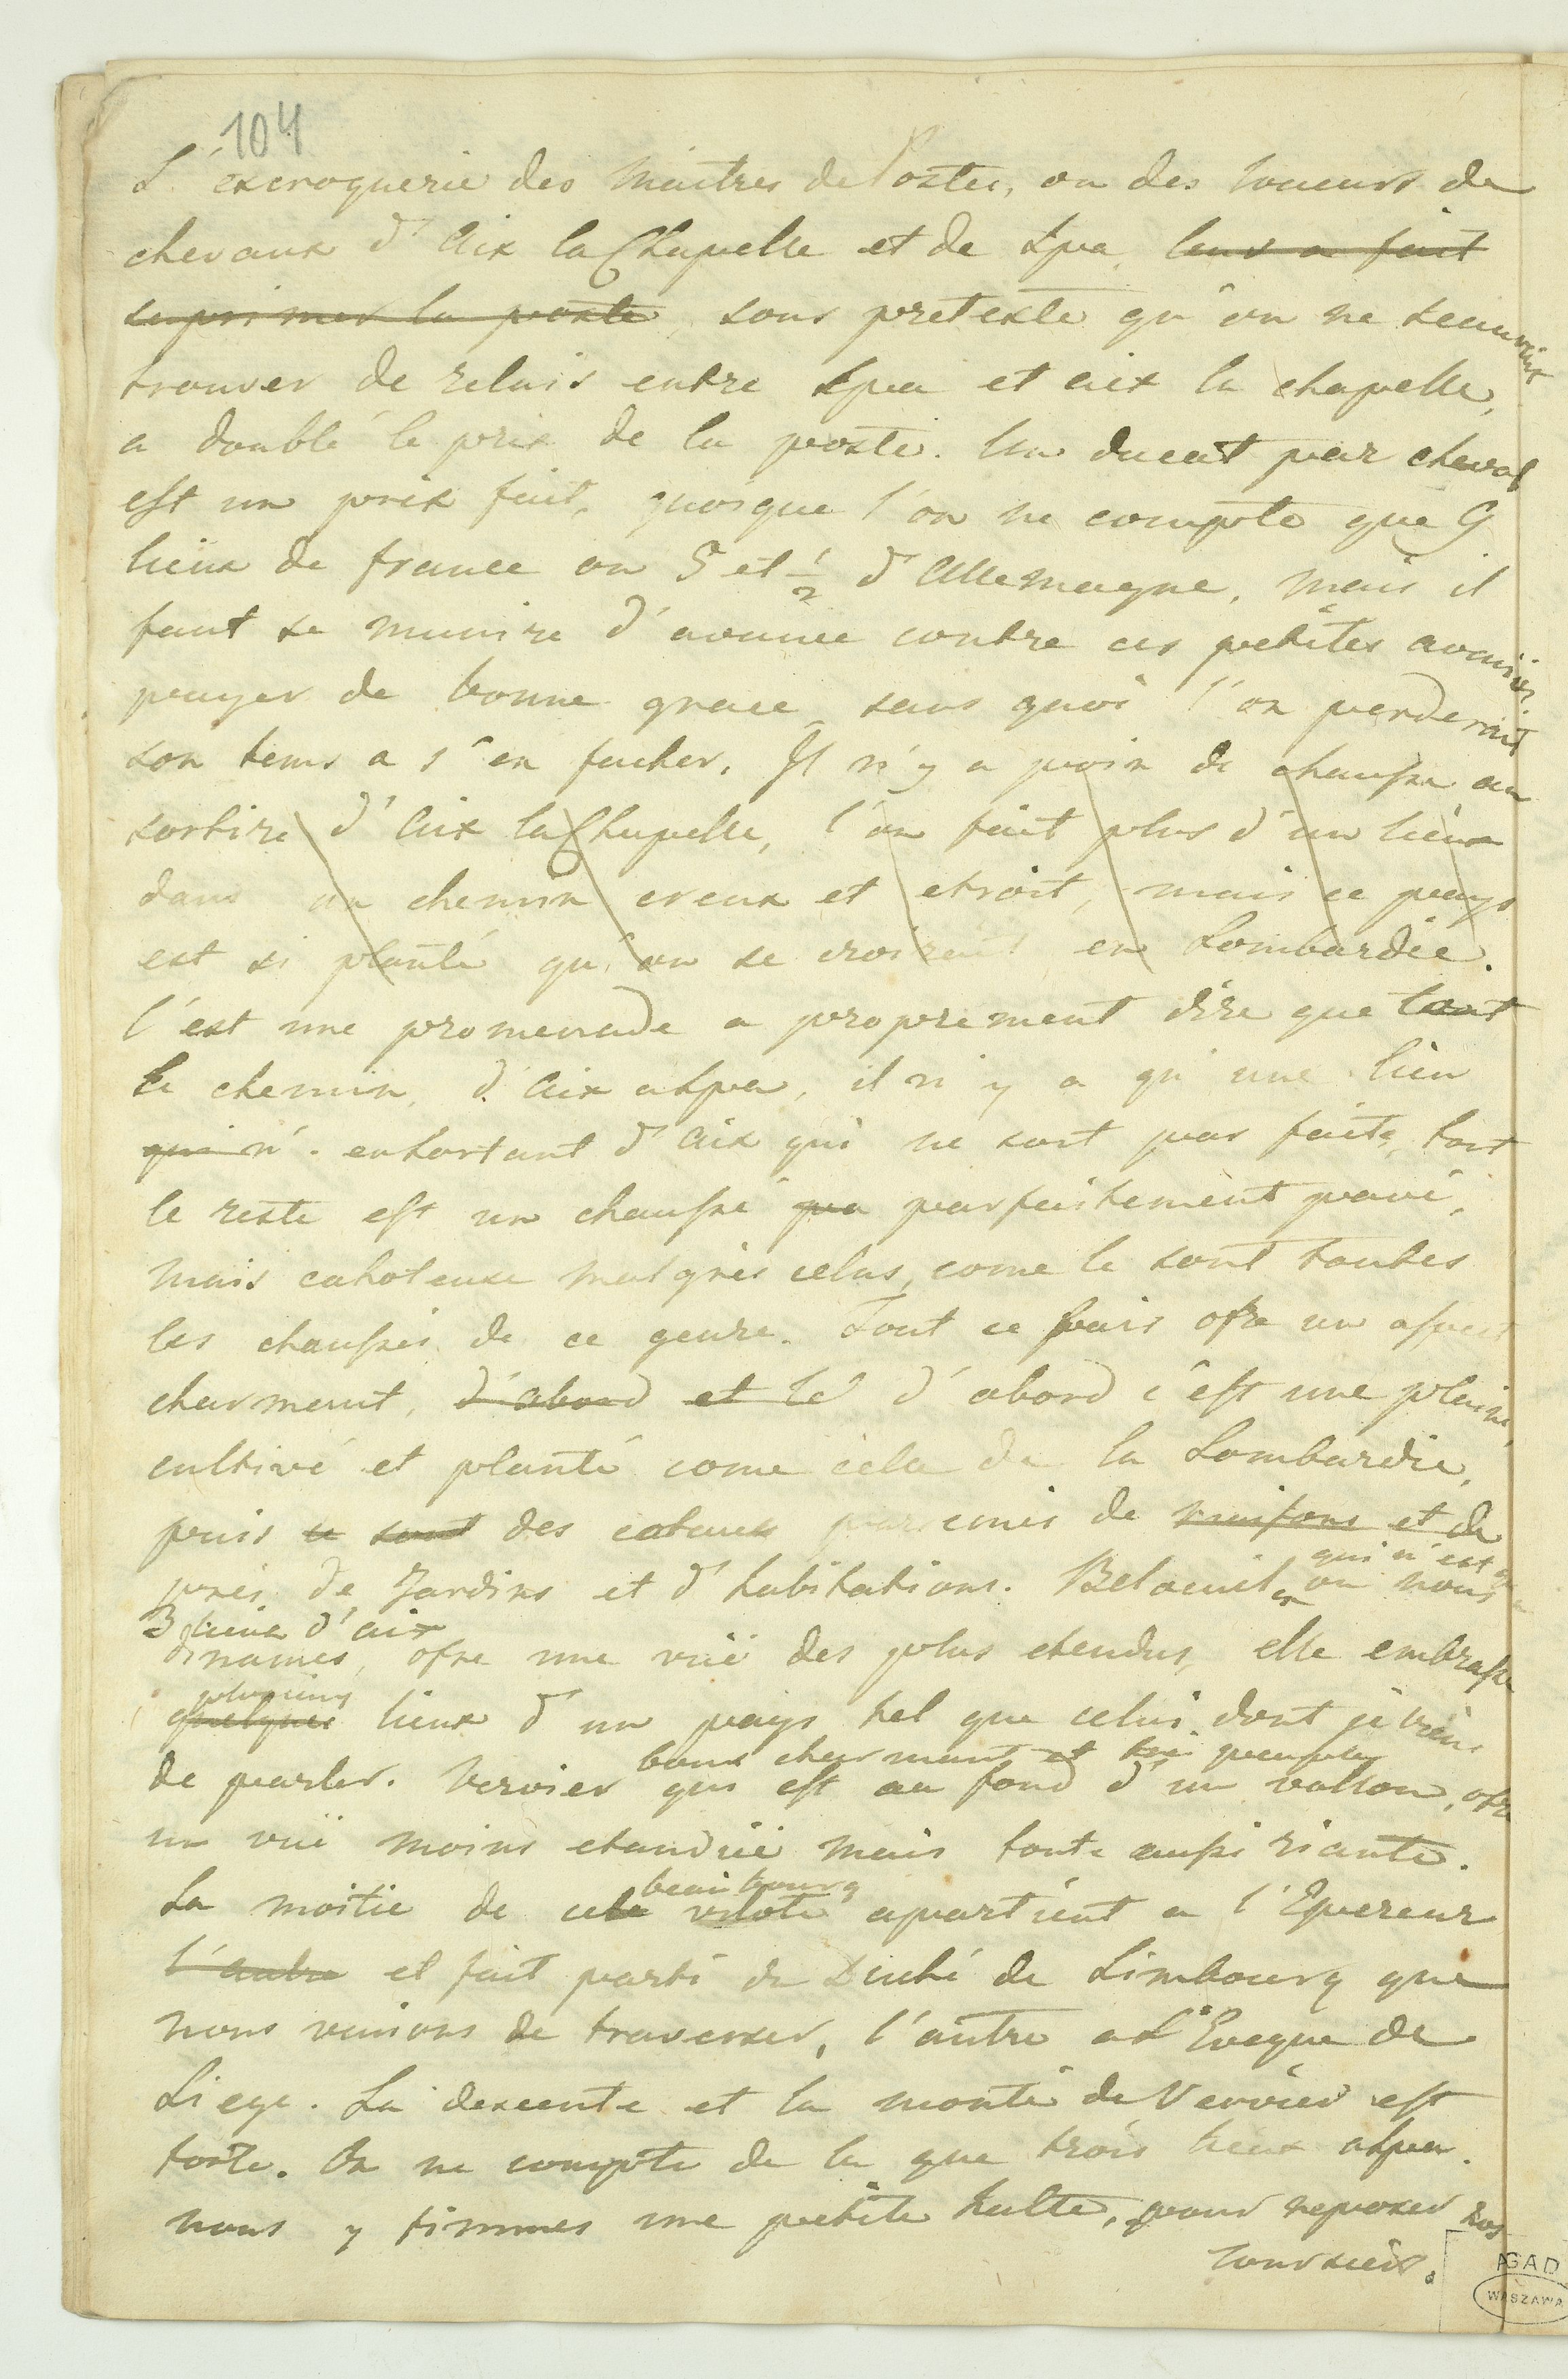 104
L'escroquerie des Maitres de Postes, ou des loueurs de
chevaux d'Aix la Chapelle et de Spa, leurs a fait
suprimer la poste, sous pretexte qu'on ne scauroint
trouver de relais entre Spa et aix la chapelle,
a doublé le prix de la poste. Un ducat par cheval
est un prix fait, quoique l'on ne compte que 9
lieux de france ou 5 et 1/2 d'Allemagne, mais il
faut se munire d'avance contre ces petites avanies,
payer de bonne grace, sans quoi l'on perderoit
son tems a s'en facher. Il n'y a poin de chaussé au
sortire d'Aix la Chapelle, l'on fait plus d'un lieux
dans un chemin creux et etroit, mais ce pays
est si planté qu'on se croiroit en Lombardie.
C'est une promenade a proprement dire que tout
le chemin, d'Aix a Spa, il n'y a qu'une lieu
qui n'. ensortant d'Aix qui ne soit pas faite, tout
le reste est un chaussé qua parfaitement pavé,
mais cahoteuse malgrés celas, come le sont toutes
les chaussés de ce genre. Tout ce pais ofre un aspect
charmant, d'abord et le d'abord c'est une plaine,
cultivé et planté come cela de la Lombardie,
puis ce sont des coteaux parsemés de maisons et de
qui n'est qu'a
prés, de Jardins et d'habitations. Belaeuil, ou nous
3 lieux d'aix
dinames, ofre une vuë des plus etendus, elle embrasse
plusieurs
quelques lieux d'un pays tel que celui dont je viens
bour charmant et peuplé
de parler. Vervier qui est au fond d'un vallon, ofre
un vuë moins etanduë mais toute aussi riante.
beau bourg
La moitié de cele vilote apartient a l'Epereur
l'autre et fait parti du Duché de Limbourg que
nous venions de traverser, l'autre a L'Eveque de
Liege. La descente et la monté de Vervier est
forte. On ne compte de la que trois lieux a Spa.
nous y fimmes une petite halte, pour reposer nos
coursiers.
AGAD
WARSZAWA